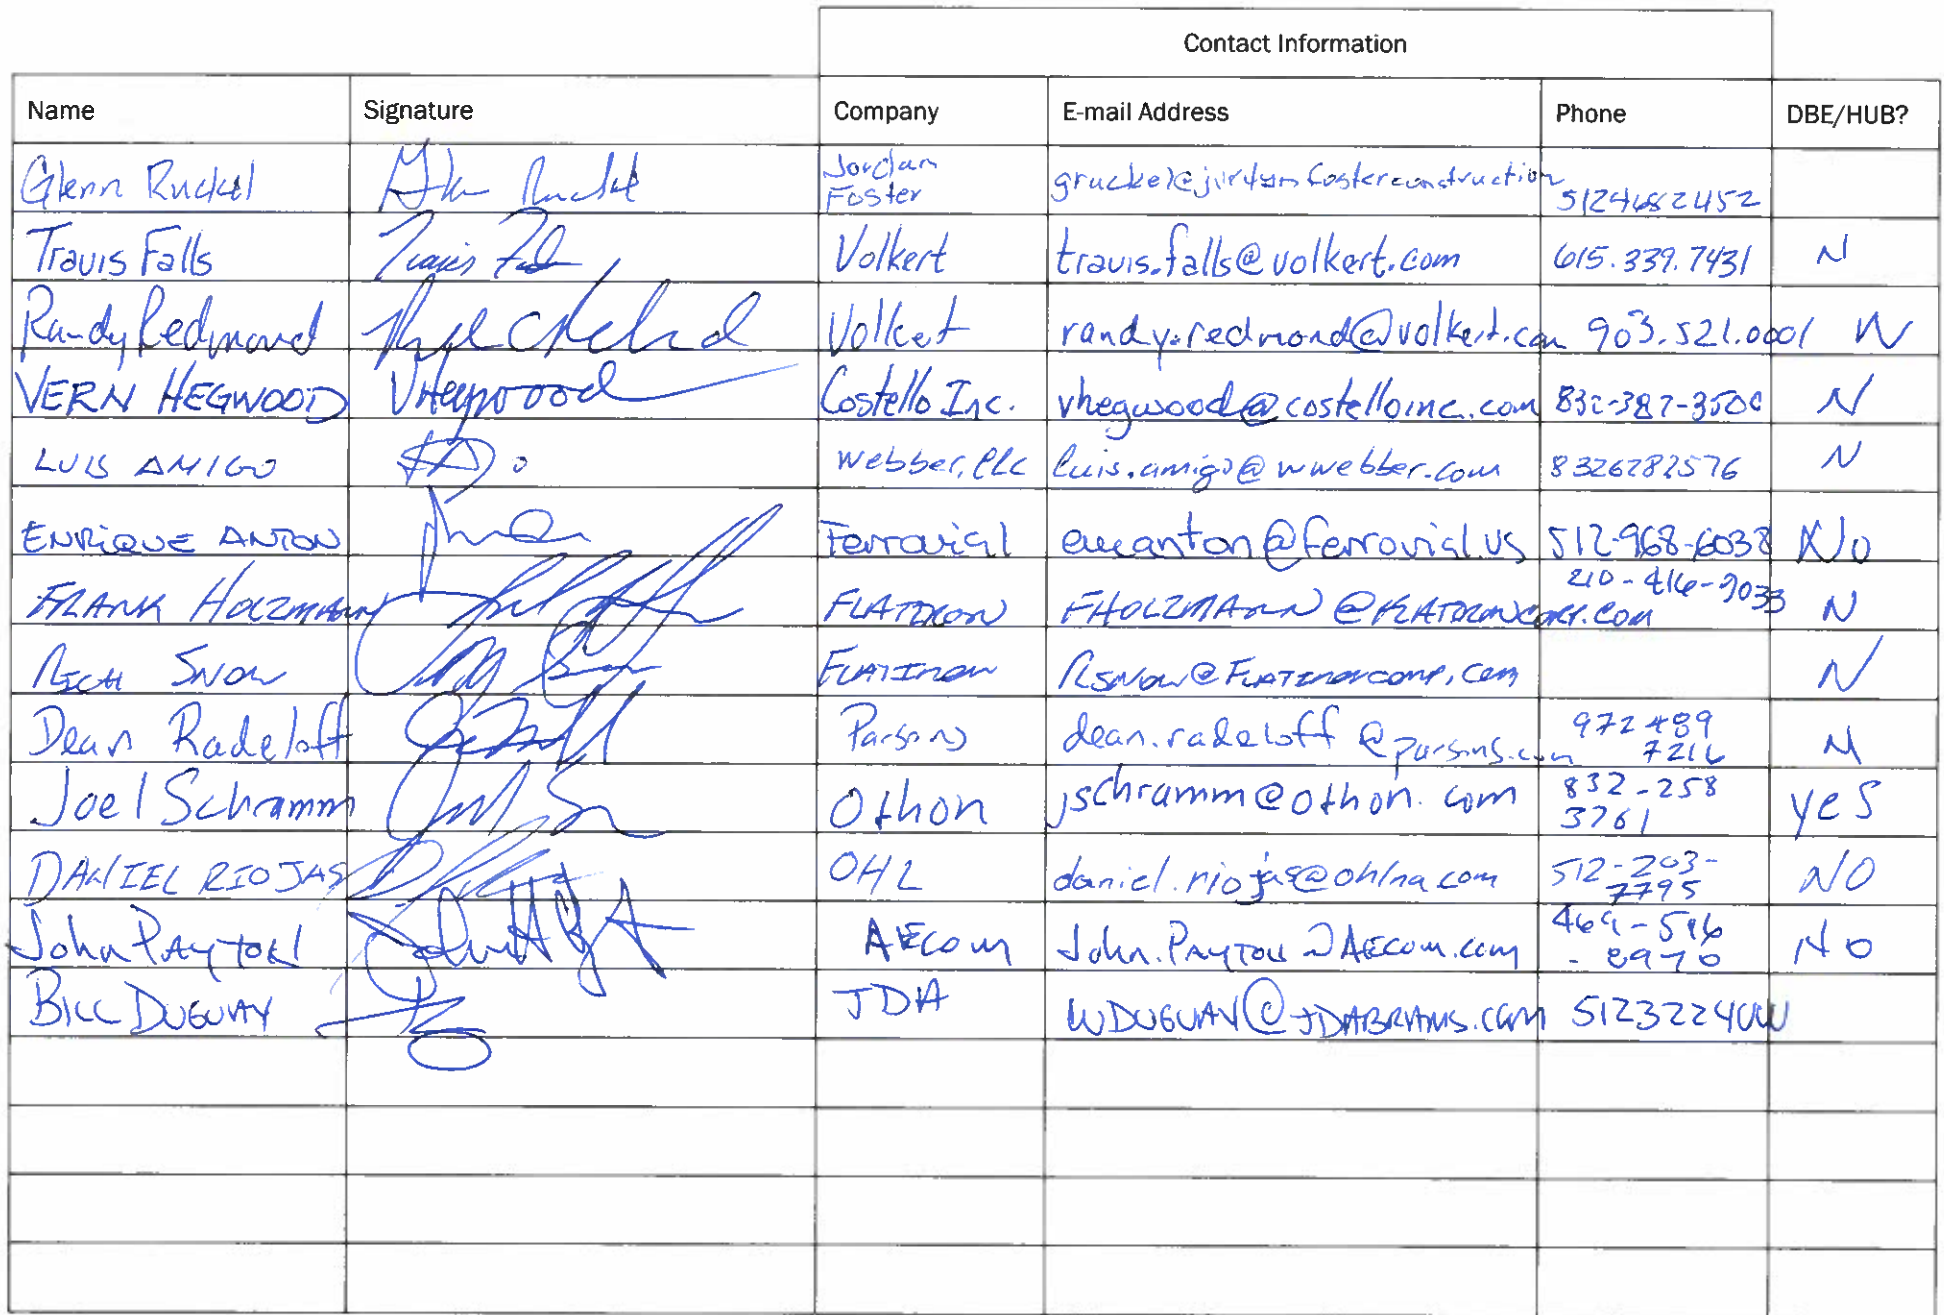 Contact Information
Name Signature Company E-mail Address Phone DBE/HUB?
Glenn Ruckel Jordan Foster gruckel@jordanfosterconstruction 5124682452
Travis Falls Travis Falls Volkert travis.falls@volkert.com 615.339.7431 N
Randy Redmond Volkert randy.redmond@volkert.com 903.521.0001 N
VERN HEGWOOD VHegwood Costello Inc. vhegwood@costelloinc.com 832-387-3500 N
LUIS AMIGO Webber, LLC luis.amigo@wwebber.com 8326282576 N
ENRIQUE ANTON Ferrovial @ferrovial.us 512-968-6038 No
FRANK HOLZMANN FLATIRON FHOLZMANN@FLATIRONCORP.COM 210-416-9033 N
RICH SNOW FLATIRON RSNOW@FLATIRONCORP.COM N
Dean Radeloff Parsons dean.radeloff@parsons.com 972 489 7216 N
Joel Schramm Othon jschramm@othon.com 832-258 3761 yes
DANIEL RIOJAS OHL daniel.riojas@ohlna.com 512-203-7795 NO
John PAYTON AECOM John.PAYTON@AECOM.com No
BILL DUGUAY JDA WDUGUAY@JDABRAMS.COM